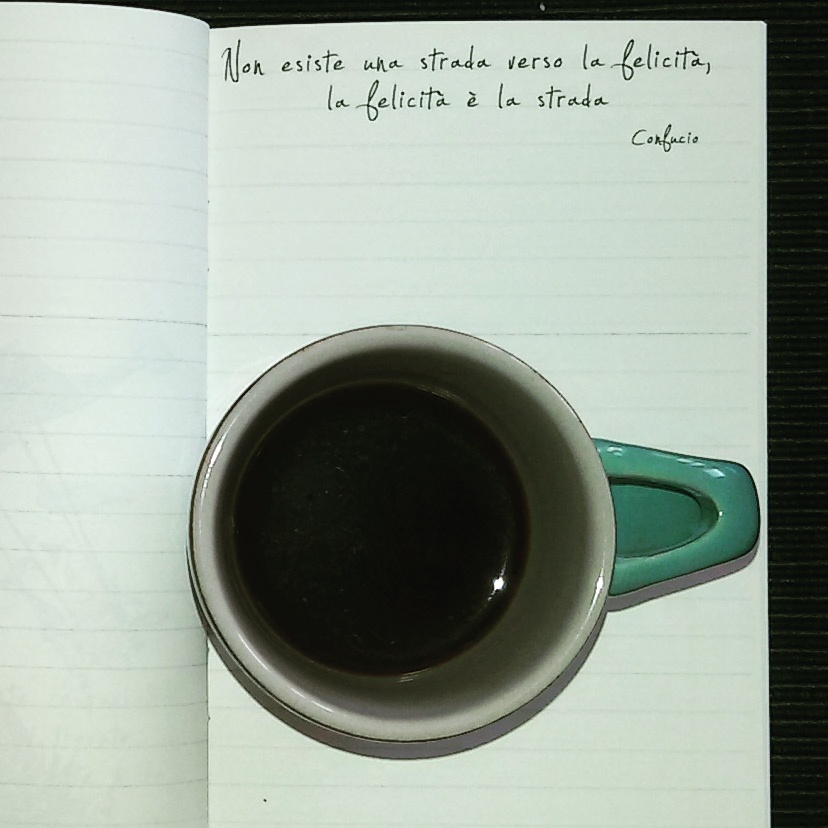 Non esiste una strada verso la felicità,
la felicità è la strada
Confucio